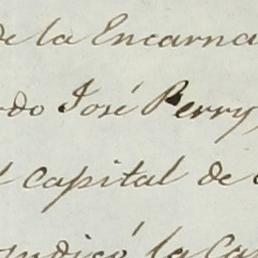 de la Encarna
do José Perry,
l Capital de
indicó la Ca